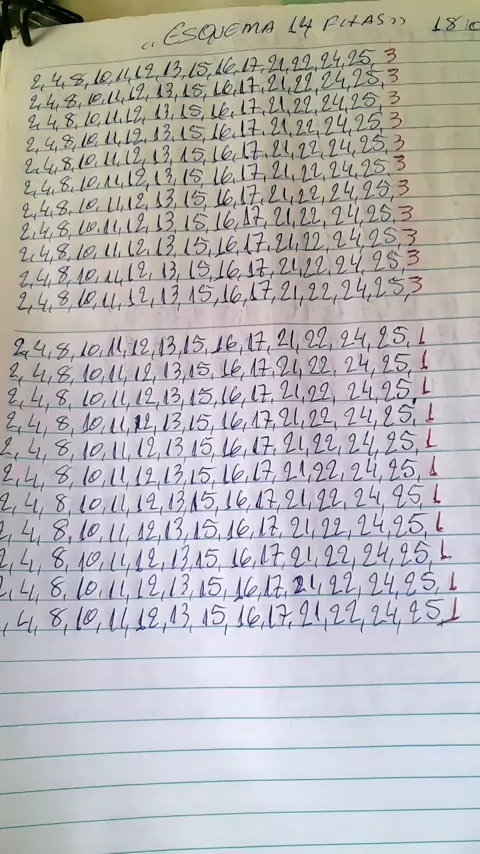 "ESQUEMA 14 FIXAS" 18
2,4,8,10,11,12,13,15,16,17,21,22,24,25,3
2,4,8,10,11,12,13,15,16,17,21,22,24,25,3
2,4,8,10,11,12,13,15,16,17,21,22,24,25,3
2,4,8,10,11,12,13,15,16,17,21,22,24,25,3
2,4,8,10,11,12,13,15,16,17,21,22,24,25,3
2,4,8,10,11,12,13,15,16,17,21,22,24,25,3
2,4,8,10,11,12,13,15,16,17,21,22,24,25,3
2,4,8,10,11,12,13,15,16,17,21,22,24,25,3
2,4,8,10,11,12,13,15,16,17,21,22,24,25,3
2,4,8,10,11,12,13,15,16,17,21,22,24,25,3
2,4,8,10,11,12,13,15,16,17,21,22,24,25,3
2,4,8,10,11,12,13,15,16,17,21,22,24,25,1
2,4,8,10,11,12,13,15,16,17,21,22,24,25,1
2,4,8,10,11,12,13,15,16,17,21,22,24,25,1
2,4,8,10,11,12,13,15,16,17,21,22,24,25,1
2,4,8,10,11,12,13,15,16,17,21,22,24,25,1
2,4,8,10,11,12,13,15,16,17,21,22,24,25,1
2,4,8,10,11,12,13,15,16,17,21,22,24,25,1
2,4,8,10,11,12,13,15,16,17,21,22,24,25,1
2,4,8,10,11,12,13,15,16,17,21,22,24,25,1
2,4,8,10,11,12,13,15,16,17,21,22,24,25,1
,4,8,10,11,12,13,15,16,17,21,22,24,25,1